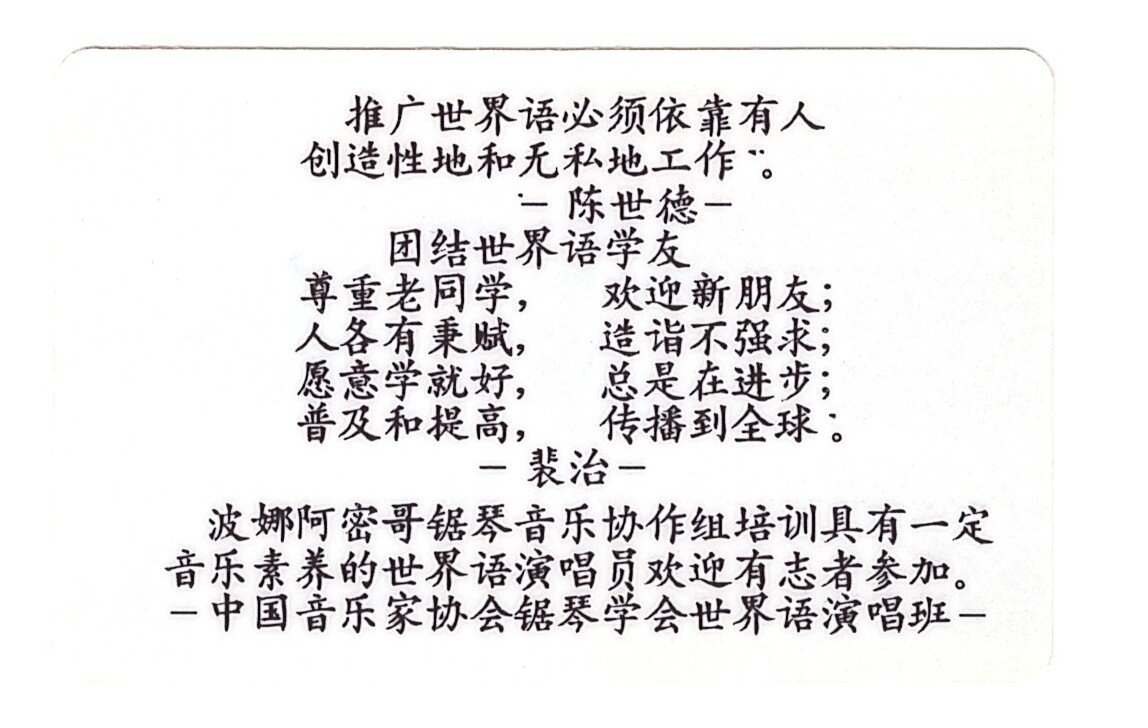 推广世界语必须依靠有人
创造性地和无私地工作¨。
－陈世德－
团结世界语学友
尊重老同学， 欢迎新朋友；
人各有秉赋， 造诣不强求；
愿意学就好， 总是在进步；
普及和提高， 传播到全球¨。
－裴治－
波娜阿密哥锯琴音乐协作组培训具有一定
音乐素养的世界语演唱员欢迎有志者参加。
－中国音乐家协会锯琴学会世界语演唱班－